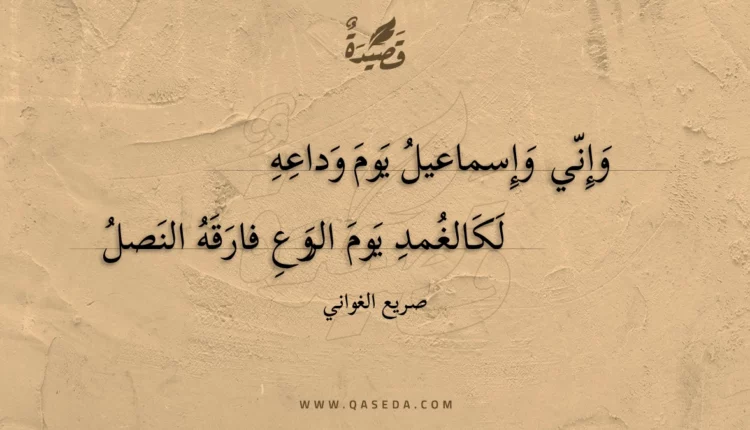 قَصِيْدَةٌ
وَإِنّي وَإِسماعيلُ يَومَ وَداعِهِ
لَكَالغُمدِ يَومَ الرَوَعِ فارَقَهُ النَصلُ
صريع الغواني
WWW.QASEDA.COM